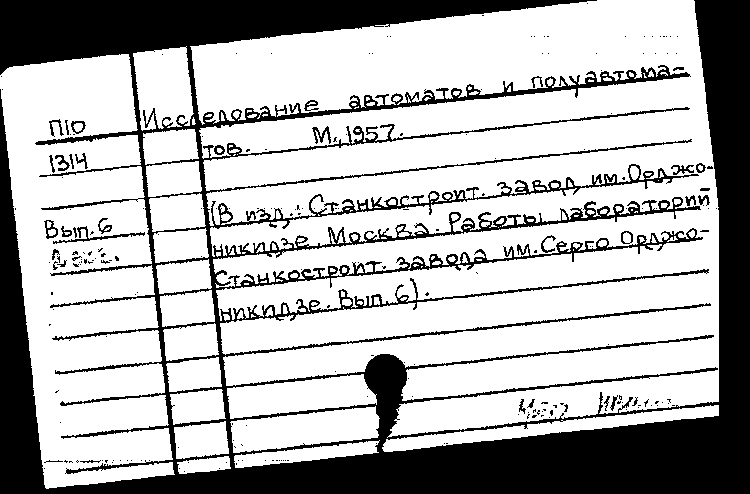 П10 Исследование автоматов и полуавтома-
1314 тов. М., 1957.
(В изд.: Станкостроит. завод им. Орджо-
Вып. 6 никидзе. Москва. Работы лабораторий
Станкостроит. завода им. Серго Орджо-
никидзе. Вып. 6).